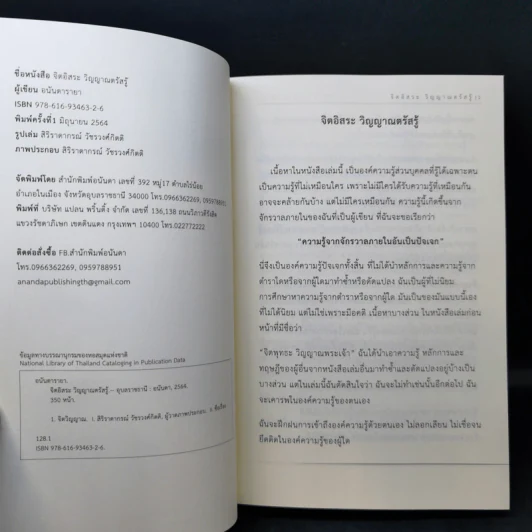 ชื่อหนังสือ จิตอิสระ วิญญาณตรัสรู้
ผู้เขียน อนันตารายา
ISBN 978-616-93463-2-6
พิมพ์ครั้งที่1 มิถุนายน 2564
รูปเล่ม สิริราดากรณ์ วัชรวงศ์กิตติ
ภาพประกอบ สิริราดากรณ์ วัชรวงศ์กิตติ
จัดพิมพ์โดย สำนักพิมพ์อนันดา เลขที่ 392 หมู่17 ตำบลไร่น้อย
อำเภอในเมือง จังหวัดอุบลราชธานี 34000 โทร.0966362269, 0959788951
พิมพ์ที่ บริษัท แปลน พริ้นติ้ง จำกัด เลขที่ 136,138
แขวงรัชดาภิเษก เขตดินแดง กรุงเทพฯ 10400 โทร.022772222
ติดต่อสั่งซื้อ FB.สำนักพิมพ์อนันดา
โทร.0966362269, 0959788951
anandapublishingth@gmail.com
ข้อมูลทางบรรณานุกรมของหอสมุดแห่งชาติ
National Library of Thailand Cataloging in Publication Data
อนันตารายา.
จิตอิสระ วิญญาณตรัสรู้.-- อุบลราชธานี : อนันดา, 2564.
350 หน้า.
1. จิตวิญญาณ. I. สิริราดากรณ์ วัชรวงศ์กิตติ, ผู้วาดภาพประกอบ. II. ชื่อเรื่อง.
128.1
ISBN 978-616-93463-2-6
จิตอิสระ วิญญาณตรัสรู้
เนื้อหาในหนังสือเล่มนี้ เป็นองค์ความรู้ส่วนบุคคลที่รู้ได้เฉพาะตน
เป็นความรู้ที่ไม่เหมือนใคร เพราะไม่มีใครได้รับความรู้ที่เหมือนกัน
อาจจะคล้ายกันบ้าง แต่ไม่มีใครเหมือนกัน ความรู้นี้เกิดขึ้นจาก
จักรวาลภายในของฉันที่เป็นผู้เขียน ที่ฉันจะขอเรียกว่า
"ความรู้จากจักรวาลภายในอันเป็นปัจเจก"
นี่จึงเป็นองค์ความรู้ปัจเจกทั้งสิ้น ที่ไม่ได้นำหลักการและความรู้จาก
ตำราใดหรือจากผู้ใดมาทำซ้ำหรือดัดแปลง ฉันเป็นผู้ที่ไม่นิยม
การศึกษาหาความรู้จากตำราหรือจากผู้ใด มันเป็นของมันแบบนี้เอง
ที่ไม่ได้นิยม แต่ไม่ใช่เพราะมีอคติ เนื้อหาบางส่วน ในหนังสือเล่มก่อน
หน้าที่มีชื่อว่า
"จิตพุทธะ วิญญาณพระเจ้า" ฉันได้นำเอาความรู้ หลักการและ
ทฤษฎีของผู้อื่นจากหนังสือเล่มอื่นมาทำซ้ำและดัดแปลงอยู่บ้างเป็น
บางส่วน แต่ในเล่มนี้ฉันตัดสินใจว่า ฉันจะไม่ทำเช่นนั้นอีกต่อไป ฉัน
จะเคารพในองค์ความรู้ของตนเอง
ฉันจะฝึกฝนการเข้าถึงองค์ความรู้ด้วยตนเอง ไม่ลอกเลียน ไม่เชื่อจน
ยึดติดในองค์ความรู้ของผู้ใด